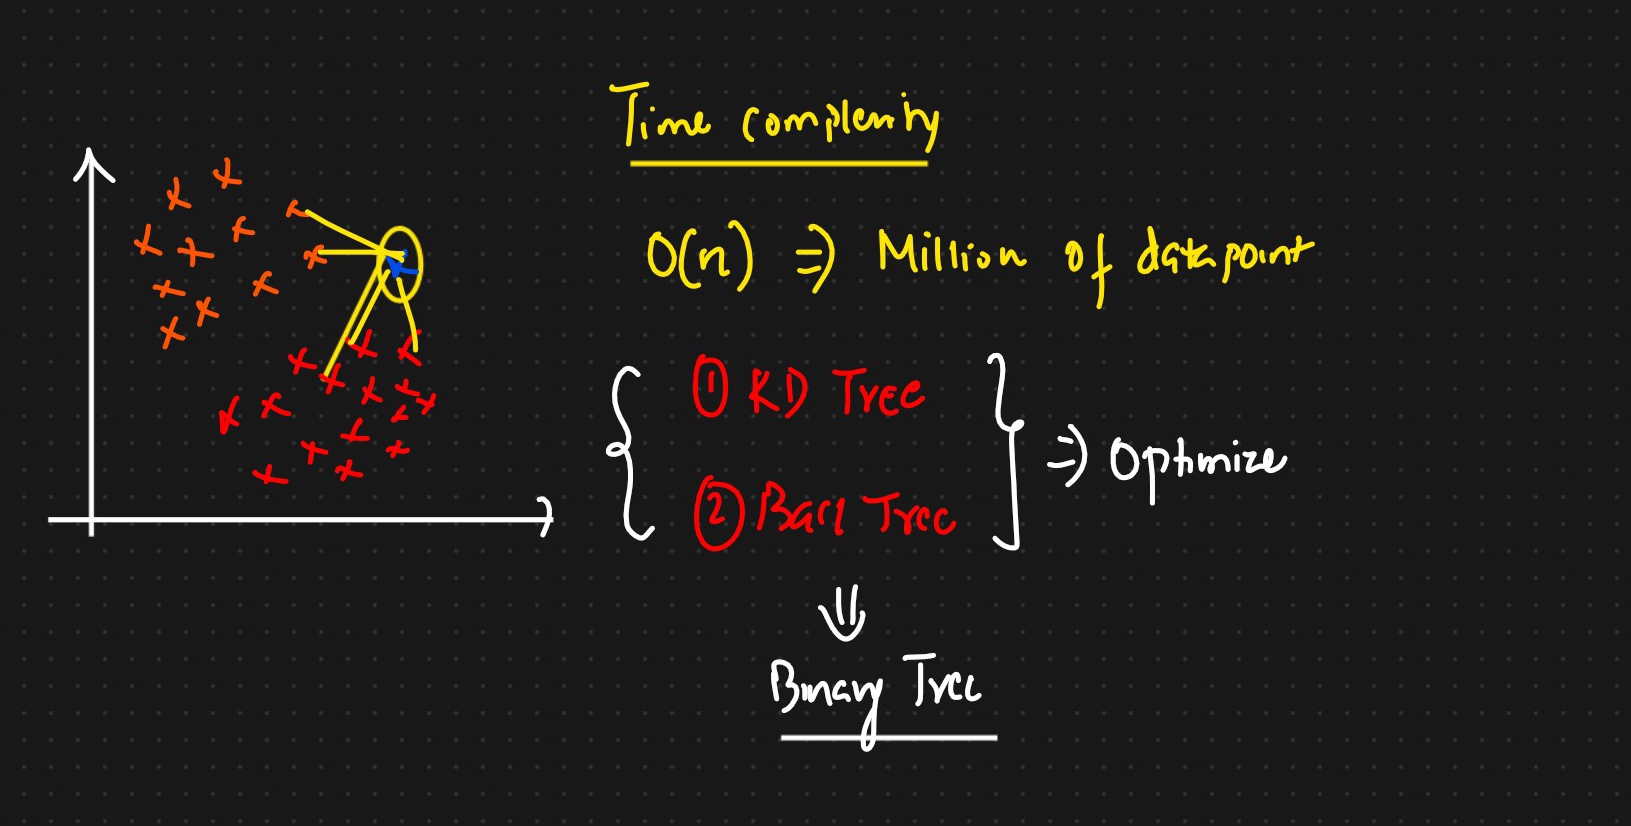 Time complexity
O(n) ⇒ Million of datapoint
① KD Tree
② Ball Tree
⇒ Optimize
⇓
Binary Tree